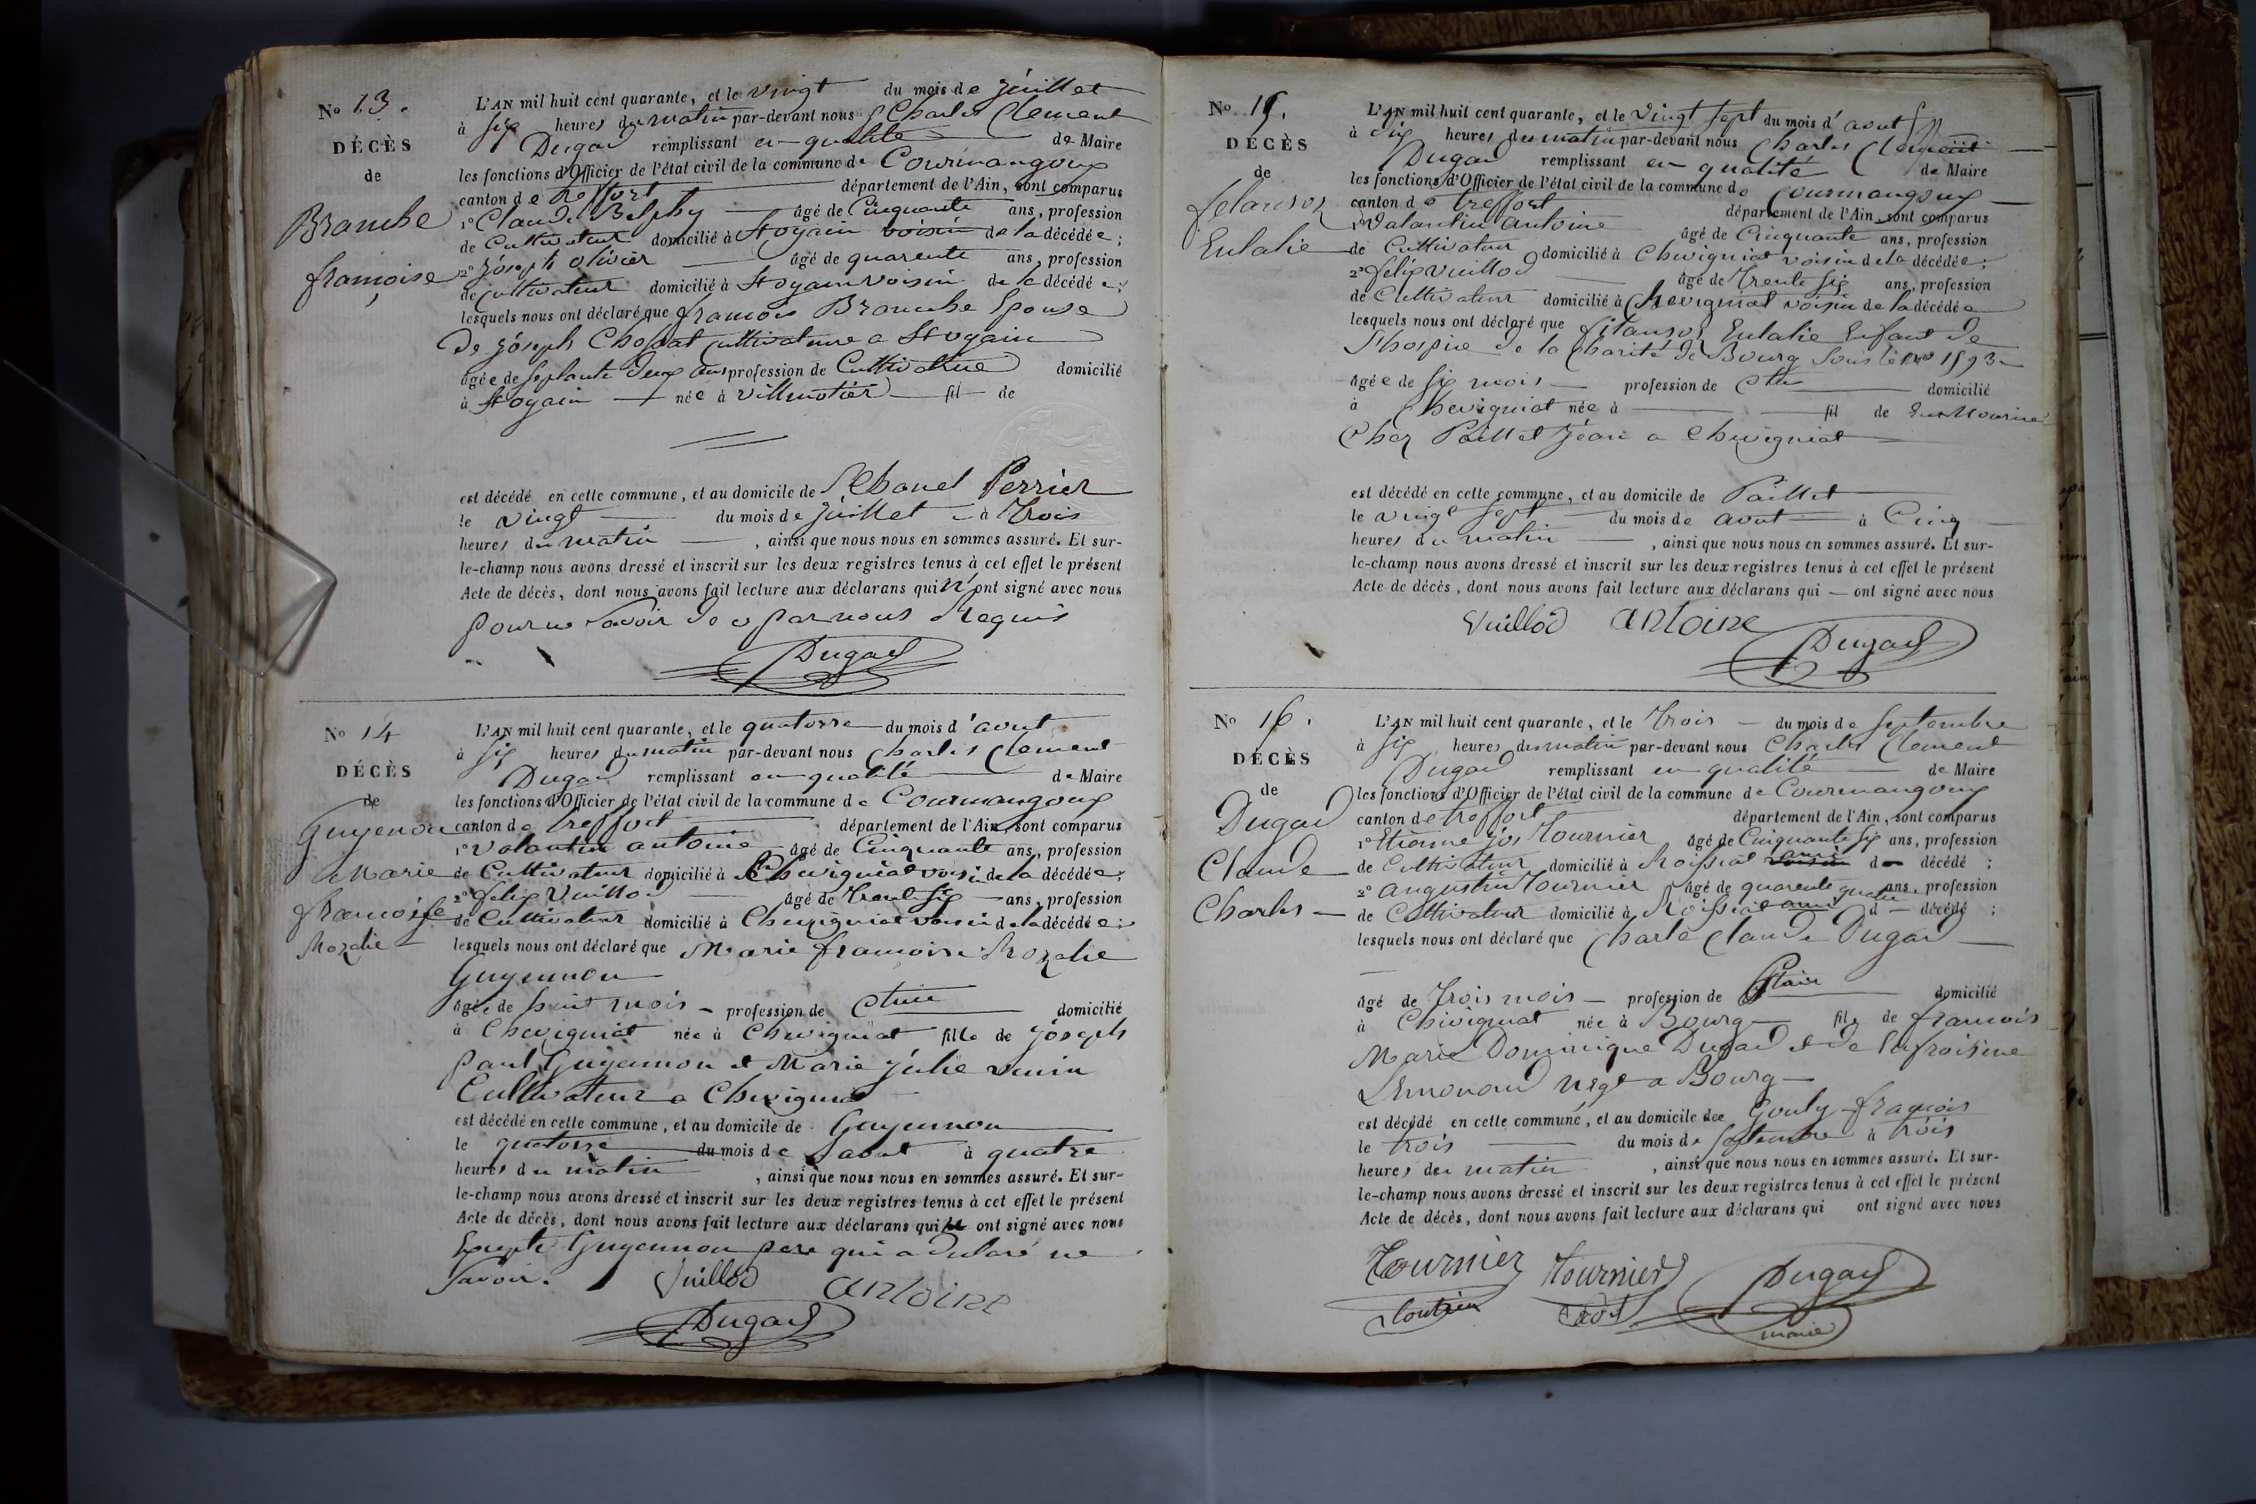 No 13.
DÉCÈS
de
Branche
françoise
L'AN mil huit cent quarante, et le vingt du mois de juillet
à six heures du matin par-devant nous Charles Clement
Dugad remplissant en qualité de Maire
les fonctions d'Officier de l'état civil de la commune de Courmangoux
canton de treffort département de l'Ain, sont comparus
1° Claude Belphy âgé de Cinquante ans, profession
de Cultivateur domicilié à St oyain voisin de la décédée;
2° Joseph olivier âgé de quarente ans, profession
de Cultivateur domicilié à St oyain voisin de la décédée;
lesquels nous ont déclaré que françois Branche Epouse
De Joseph Chossat Cultivateure a St oyain
âgée de Septante deux ans profession de Cultivatrice domicilié
à St oyain née à villmotier fil de
est décédé en cette commune, et au domicile de Perrier
le vingt du mois de juillet à trois
heures du matin, ainsi que nous nous en sommes assuré. Et sur-
le-champ nous avons dressé et inscrit sur les deux registres tenus à cet effet le présent
Acte de décès, dont nous avons fait lecture aux déclarans qui n'ont signé avec nous
pour ne Savoir de par nous Requis
Dugad
No 14
DÉCÈS
de
Guyenon
Marie
francoise
Rozalie
L'AN mil huit cent quarante, et le quatorse du mois d'aout
à six heures du matin par-devant nous Charles Clement
Dugad remplissant en qualité de Maire
les fonctions d'Officier de l'état civil de la commune de Courmangoux
canton de treffort département de l'Ain, sont comparus
1° valantin antoine âgé de Cinquante ans, profession
de Cultivateur domicilié à Chevigniat voisin de la décédée;
2° felix Vuillod âgé de trente six ans, profession
de Cultivateur domicilié à Chevigniat voisin de la décédée;
lesquels nous ont déclaré que Marie francoise Rozalie
Guyennon
âgée de huit mois profession de domicilié
à Chevigniat née à Chevigniat fille de Joseph
paul Guyennon et Marie Julie vuin
Cultivateur a Chevigniat
est décédé en cette commune, et au domicile de Guyennon
le quatorse du mois de aout à quatre
heures du matin, ainsi que nous nous en sommes assuré. Et sur-
le-champ nous avons dressé et inscrit sur les deux registres tenus à cet effet le présent
Acte de décès, dont nous avons fait lecture aux déclarans qui ont signé avec nous
Excepté Guyennon pere qui a declaré ne
Savoir. Vuillod antoine
Dugad
No 15.
DÉCÈS
de
Eulalie
L'AN mil huit cent quarante, et le vingt sept du mois d'aout
à six heures du matin par-devant nous Charles Clement
Dugad remplissant en qualité de Maire
les fonctions d'Officier de l'état civil de la commune de Courmangoux
canton de treffort département de l'Ain, sont comparus
1° Valantin antoine âgé de Cinquante ans, profession
de Cultivateur domicilié à Chevigniat voisin de la décédée;
2° felix vuillod âgé de trente six ans, profession
de Cultivateur domicilié à Chevigniat voisin de la décédée
lesquels nous ont déclaré que Eulalie Enfant de
l'hospice de la Charité de Bourg Sous le
âgée de six mois profession de domicilié
à Chevigniat née à fil de
Chez Paillet Jean a Chevigniat
est décédé en cette commune, et au domicile de Paillet
le vingt sept du mois de aout à Cinq
heures du matin, ainsi que nous nous en sommes assuré. Et sur-
le-champ nous avons dressé et inscrit sur les deux registres tenus à cet effet le présent
Acte de décès, dont nous avons fait lecture aux déclarans qui ont signé avec nous
Vuillod antoine
Dugad
No 16.
DÉCÈS
de
Dugad
Claude
Charles
L'AN mil huit cent quarante, et le trois du mois de Septembre
à six heures du matin par-devant nous Charles Clement
Dugad remplissant en qualité de Maire
les fonctions d'Officier de l'état civil de la commune de Courmangoux
canton de treffort département de l'Ain, sont comparus
1° Etienne jos Tournier âgé de Cinquante six ans, profession
de Cultivateur domicilié à Roissiat ami d décédé;
2° augustin Tournier âgé de quarente quatre ans, profession
de Cultivateur domicilié à Roissiat ami d décédé;
lesquels nous ont déclaré que Charle Claude Dugad
âgé de trois mois profession de domicilié
à Chivigniat née à Bourg fils de francois
Marie Dominique Dugad et de
Limonand negt a Bourg
est décédé en cette commune, et au domicile de Gouly françois
le trois du mois de Septembre à trois
heures du matin, ainsi que nous nous en sommes assuré. Et sur-
le-champ nous avons dressé et inscrit sur les deux registres tenus à cet effet le présent
Acte de décès, dont nous avons fait lecture aux déclarans qui ont signé avec nous
Tournier Tournier Dugad
maire